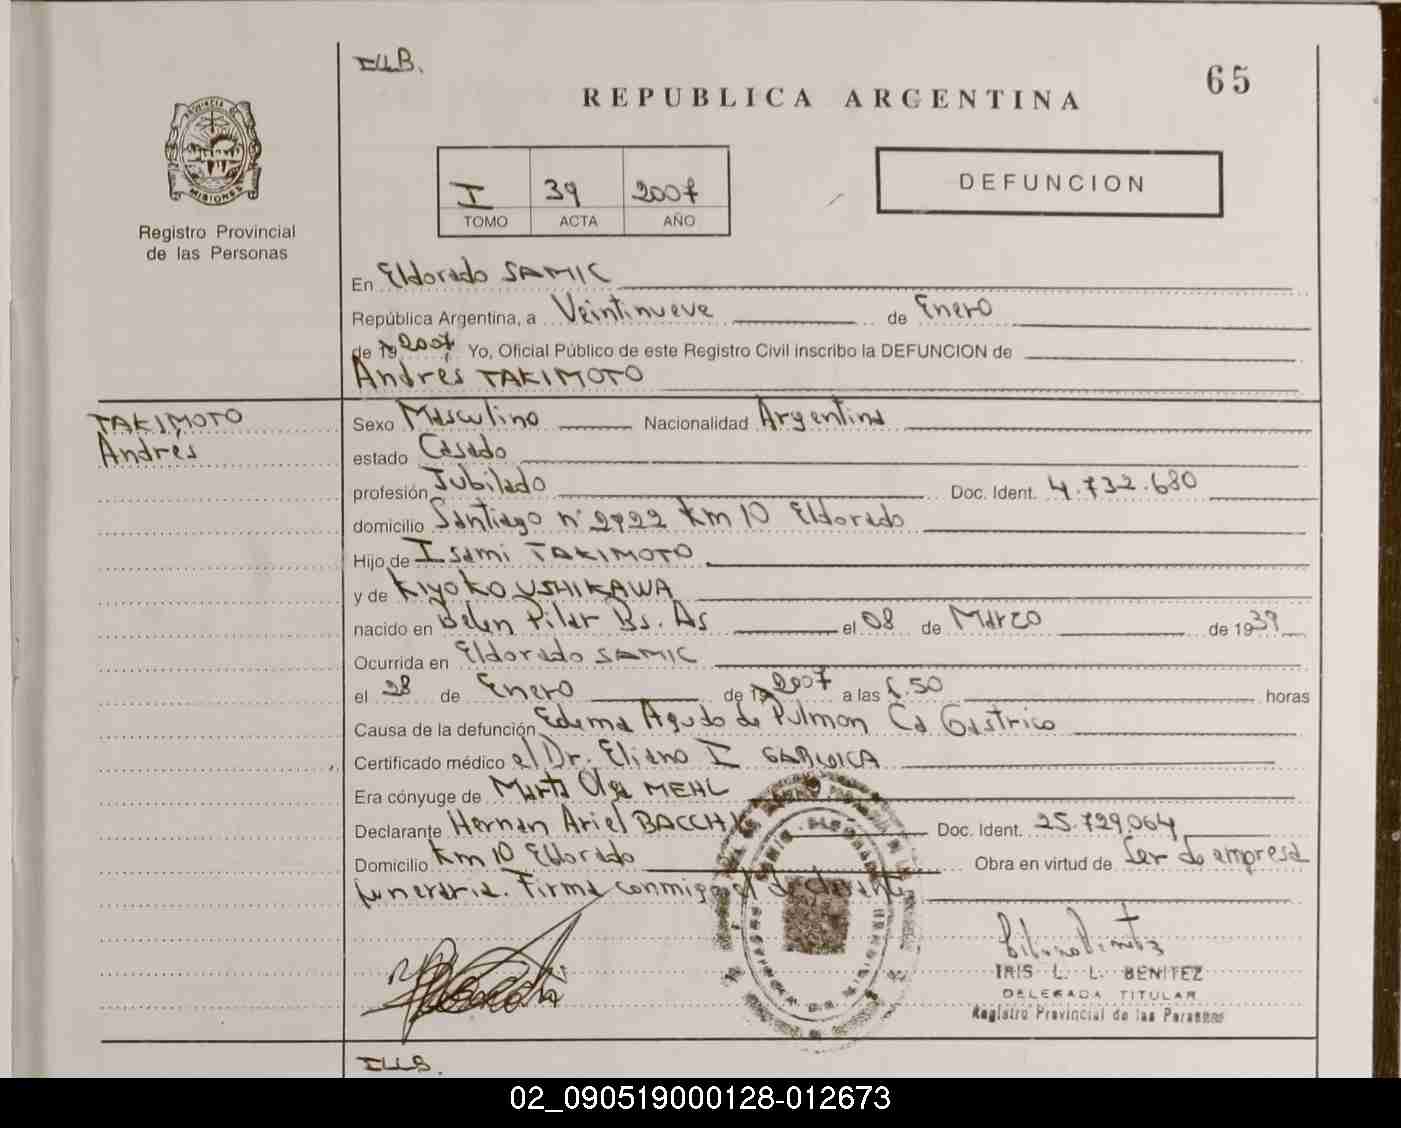 ILLB.
65
REPUBLICA ARGENTINA
PROVINCIA DE
MISIONES
Registro Provincial
de las Personas
I 39 2007
TOMO ACTA AÑO
DEFUNCION
En Eldorado SAMIC
República Argentina, a Veintinueve de Enero
de 19 2007 Yo, Oficial Público de este Registro Civil inscribo la DEFUNCION de
Andrés TAKIMOTO
TAKIMOTO
Andrés
Sexo Masculino Nacionalidad Argentina
estado Casado
profesión Jubilado Doc. Ident. 4.732.680
domicilio Santiago n° 2922 Km 10 Eldorado
Hijo de Isami TAKIMOTO
y de Kiyoko USHIKAWA
nacido en Belen Pilar Bs. As el 08 de Marzo de 1939
Ocurrida en Eldorado SAMIC
el 28 de Enero de 19 2007 a las 6.50 horas
Causa de la defunción Edema Agudo de Pulmon Ca Gastrico
Certificado médico el Dr. Eliano I
Era cónyuge de Marta Olga MEHL
Declarante Hernan Ariel Doc. Ident. 25.729.064
Domicilio Km 10 Eldorado Obra en virtud de Ser de empresa
funeraria. Firma conmigo el declarante
IRIS L. L. BENITEZ
DELEGADA TITULAR
Registro Provincial de las Personas
ILLB.
02_090519000128-012673